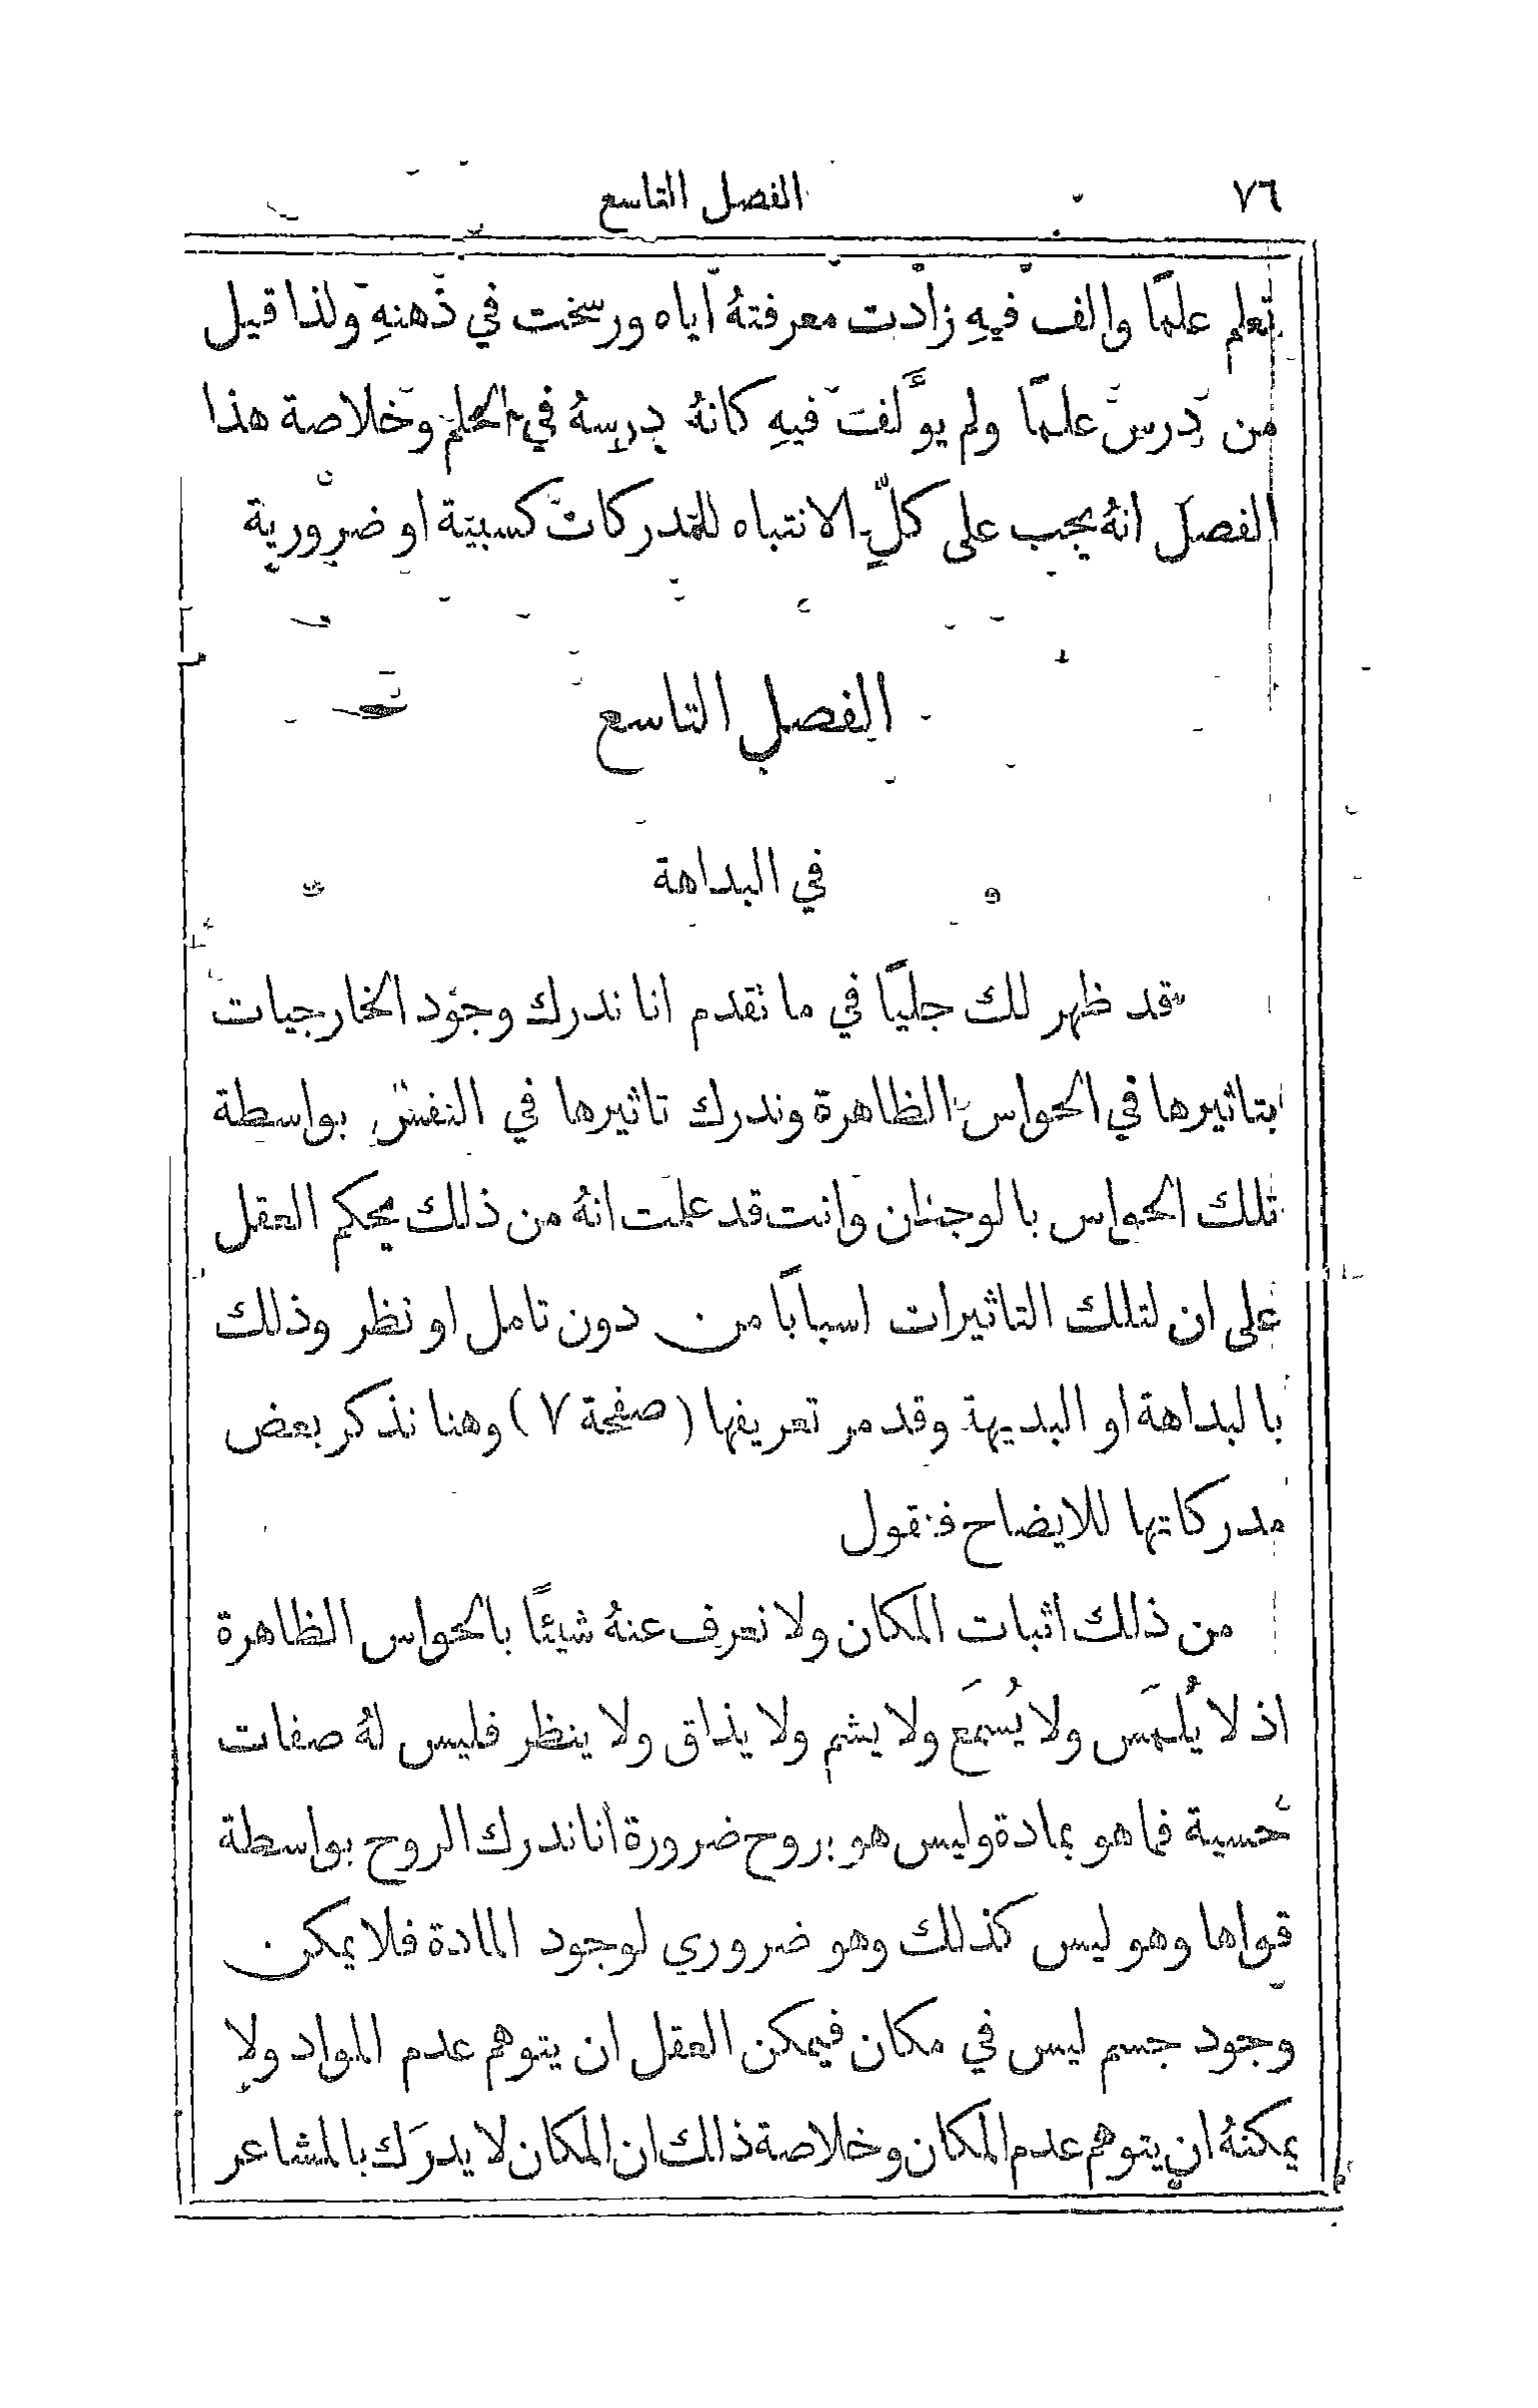 ٧٦
الفصل التاسع
تعلم علمًا والف فيهِ زادت معرفتهُ اياه ورسخت في ذهنهِ ولذا قيل
من درس علمًا ولم يؤَلف فيهِ كانهُ درسهُ في الحلم وخلاصة هذا
الفصل انهُ يجب على كلٍّ الانتباه للمدركات كسبية او ضرورية
الفصل التاسع
في البداهة
قد ظهر لك جليًا في ما تقدم انا ندرك وجود الخارجيات
بتاثيرها في الحواس الظاهرة وندرك تاثيرها في النفس بواسطة
تلك الحواس بالوجدان وانت قد علمت انهُ من ذلك يحكم العقل
على ان لتلك التاثيرات اسبابًا من دون تامل او نظر وذلك
بالبداهة او البديهة وقد مر تعريفها (صفحة ٧) وهنا نذكر بعض
مدركاتها للايضاح فنقول
من ذلك اثبات المكان ولا نعرف عنهُ شيئًا بالحواس الظاهرة
اذ لا يُلمَس ولا يُسمَع ولا يشم ولا يذاق ولا ينظر فليس لهُ صفات
حسية فما هو بمادة وليس هو بروح ضرورة انا ندرك الروح بواسطة
قواها وهو ليس كذلك وهو ضروري لوجود المادة فلا يمكن
وجود جسم ليس في مكان فيمكن العقل ان يتوهم عدم المواد ولا
يمكنهُ ان يتوهم عدم المكان وخلاصة ذلك ان المكان لا يدرَك بالمشاعر